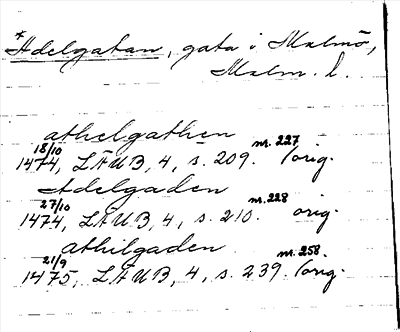 *Adelgatan, gata i Malmö,
Malm. l.
athelgathen
18/10 nr. 227
1474, LÄUB, 4, s. 209. orig.
Adelgaden
27/10 nr. 228
1474, LÄUB, 4, s. 210. orig.
athilgaden
21/9 nr. 258.
1475, LÄUB, 4, s. 239. orig.